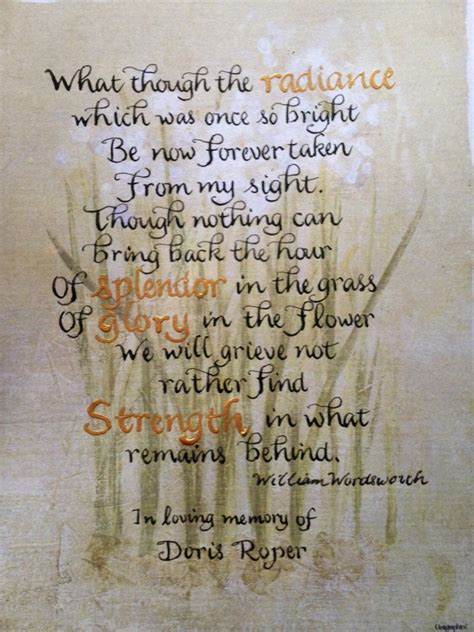 What though the radiance
which was once so bright
Be now forever taken
From my sight.
Though nothing can
Bring back the hour
Of splendor in the grass
Of glory in the flower
We will grieve not
rather find
Strength in what
remains behind.
William Wordsworth
In loving memory of
Doris Roper